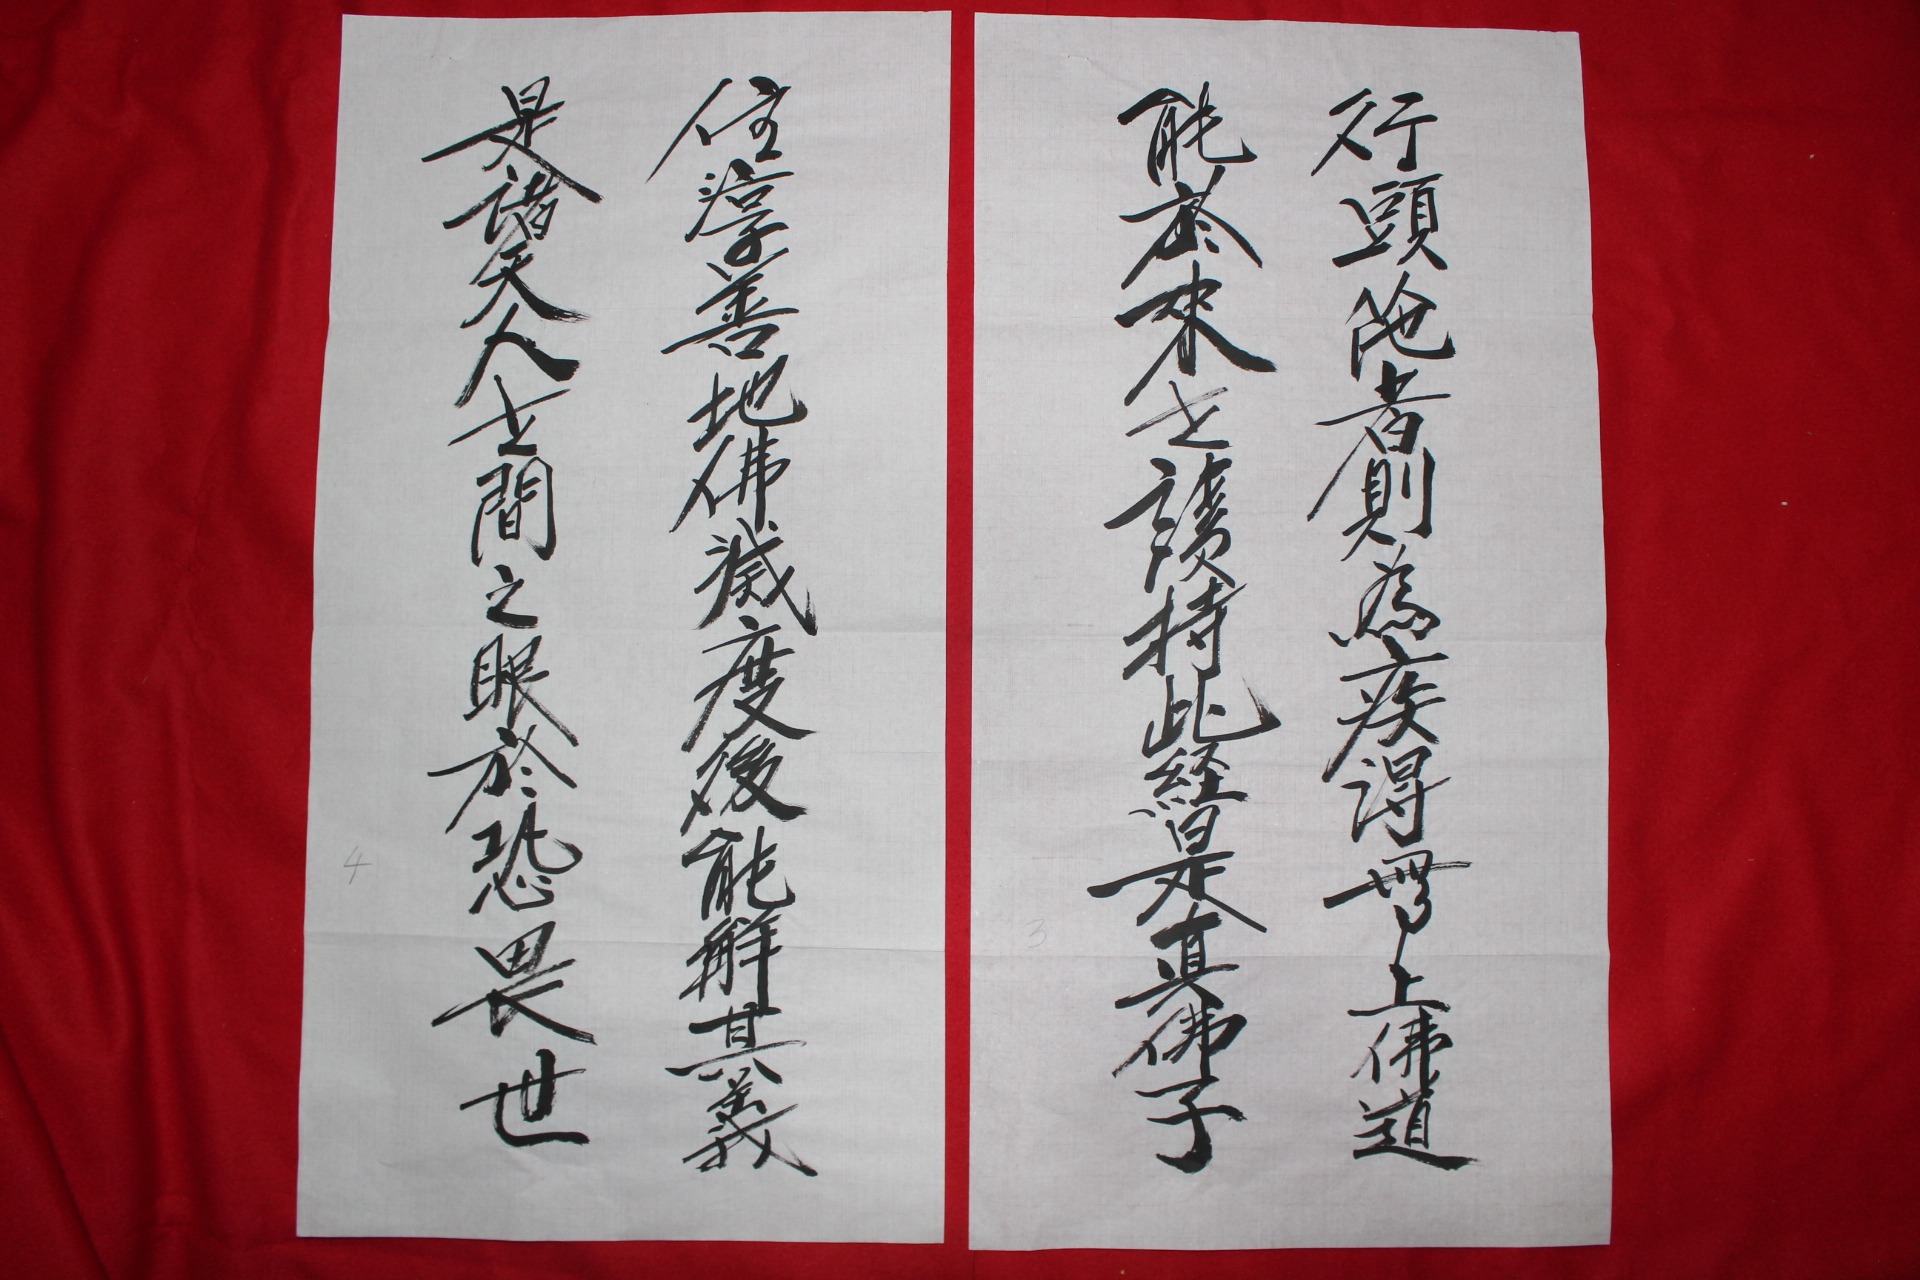 行頭陀者則為疾得無上佛道
能於來世讀持此経是真佛子
3
住淳善地佛滅度後能解其義
是諸天人世間之眼於恐畏世
4